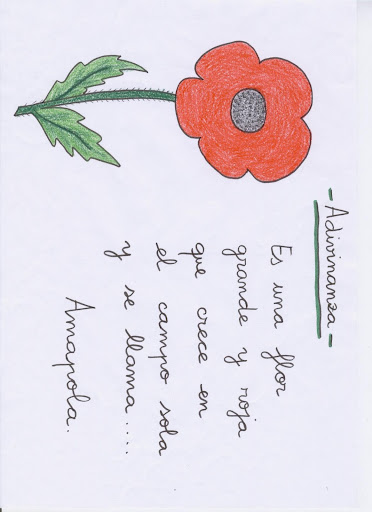 - Adivinanza -
Es una flor
grande y roja
que crece en
el campo sola
y se llama.....
Amapola.